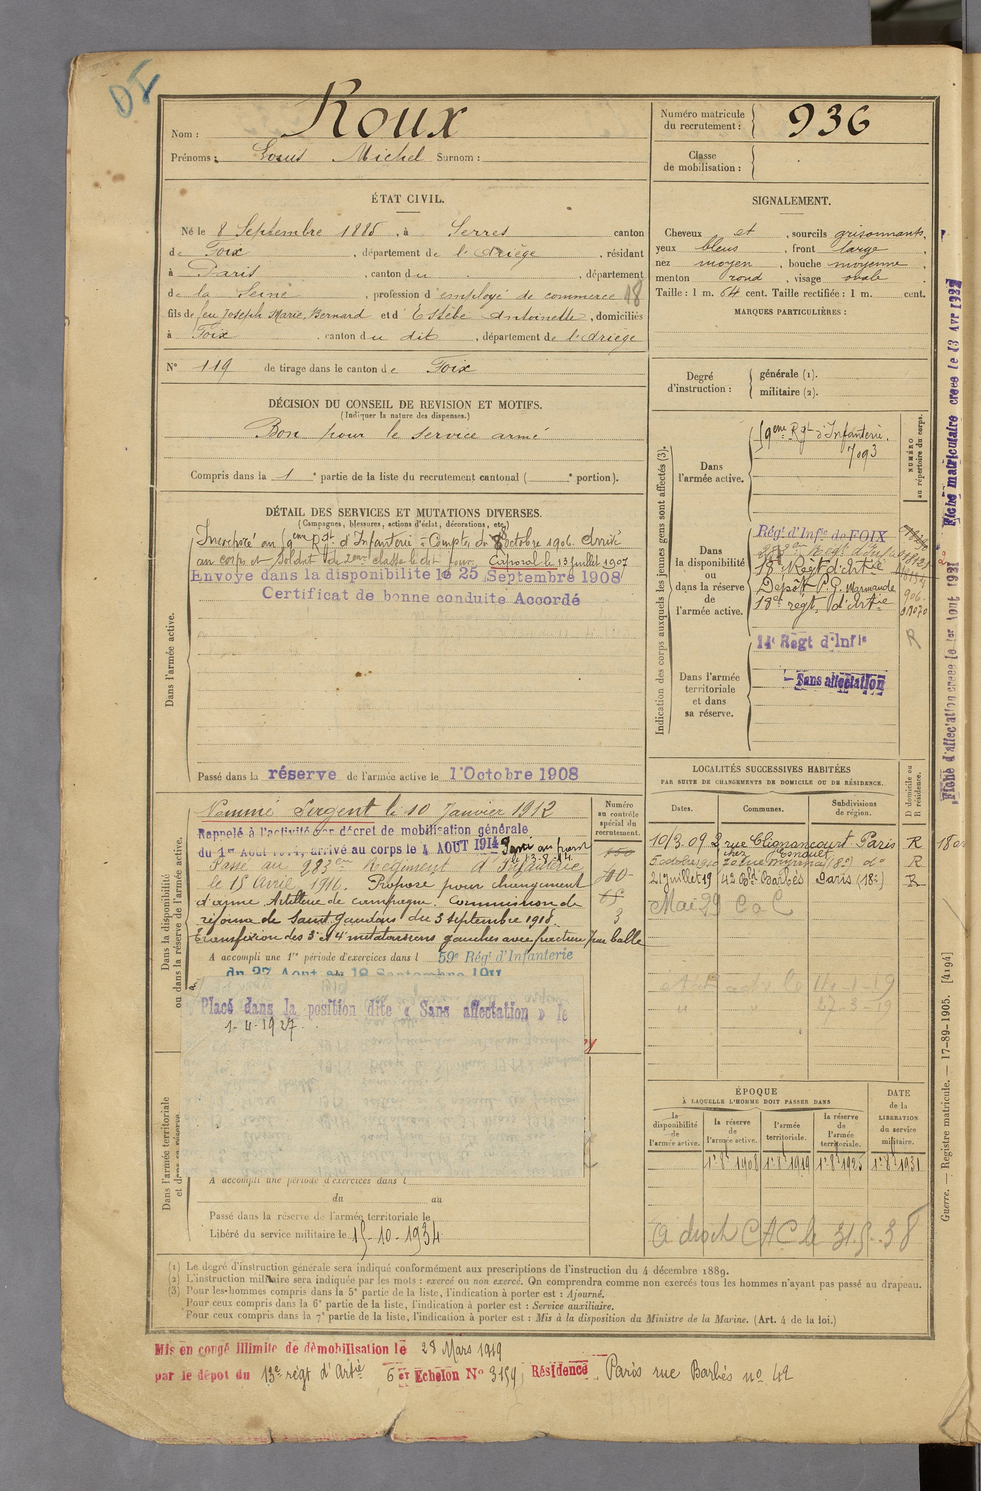 Nom : Roux
Prénoms : Louis Michel Surnom :
Numéro matricule du recrutement : 936
Classe de mobilisation :
ÉTAT CIVIL.
Né le 8 Septembre 1885, à Serres canton
de Foix, département de l'Ariège, résidant
à Paris, canton du , département
de la Seine, profession d'employé de commerce 18
fils de feu Joseph Marie, Bernard et d'Estèbe Antoinette, domiciliés
à Foix, canton du dit, département de l'Ariège
N° 119 de tirage dans le canton de Foix
DÉCISION DU CONSEIL DE REVISION ET MOTIFS.
(Indiquer la nature des dispenses.)
Bon pour le service armé
Compris dans la 1e partie de la liste du recrutement cantonal ( e portion).
SIGNALEMENT.
Cheveux et, sourcils grisonnants,
yeux bleus, front large
nez moyen, bouche moyenne,
menton rond, visage ovale
Taille : 1 m. 64 cent. Taille rectifiée : 1 m. cent.
MARQUES PARTICULIÈRES :
Degré d'instruction :
générale (1).
militaire (2).
DÉTAIL DES SERVICES ET MUTATIONS DIVERSES.
(Campagnes, blessures, actions d'éclat, décorations, etc.)
Dans l'armée active.
Incorporé au 9ème Rgt d'Infanterie à Compter du 8 octobre 1906. Arrivé
au corps et Soldat de 2ème classe le dit jour. Caporal le 13 juillet 1907
Envoyé dans la disponibilité le 25 Septembre 1908
Certificat de bonne conduite Accordé
Passé dans la réserve de l'armée active le 1 Octobre 1908
Dans la disponibilité ou dans la réserve de l'armée active.
Numéro au contrôle spécial du recrutement.
Nommé Sergent le 10 Janvier 1912
Rappelé à l'activité par décret de mobilisation générale
du 1er Août 1914, arrivé au corps le 4 AOUT 1914
Passé au 283ème Régiment d'Infanterie
le 15 Avril 1916. Proposé pour changement
d'arme Artillerie de campagne. Commission de
réforme de Saint Gaudens du 3 septembre 1918.
Transfixion des 3e et 4e métatarsiens gauches avec fracture par balle
A accompli une 1re période d'exercices dans l 59e Régt d'Infanterie
du 27 Aout au 18 Septembre 1911
Placé dans la position dite « Sans affectation » le
1-4-1927.
Dans l'armée territoriale et dans sa réserve
A accompli une période d'exercices dans l
du au
Passé dans la réserve de l'armée territoriale le
Libéré du service militaire le 15-10-1934
Indication des corps auxquels les jeunes gens sont affectés (3).
NUMÉRO au répertoire du corps.
Dans l'armée active.
9ème Rgt d'Infanterie.
7093
Dans la disponibilité ou dans la réserve de l'armée active.
Régt d'Infie de FOIX
Régt d'Artie
Dépôt P.G. Marmande
18e régt. d'Artie
R
Dans l'armée territoriale et dans sa réserve.
14e Régt d'Infie
Sans affectation
LOCALITÉS SUCCESSIVES HABITÉES
PAR SUITE DE CHANGEMENTS DE DOMICILE OU DE RÉSIDENCE.
Dates. Communes. Subdivisions de région. D domicile ou R résidence.
10/3.09 2 rue Clignancourt Paris R
5 octobre 1910 20 rue Myrrha (18e) do R
21 juillet 19 42 Bd Barbès Paris (18e) R
Mai 29 CaC
14-1-19
27-3-19
ÉPOQUE
À LAQUELLE L'HOMME DOIT PASSER DANS
DATE de la LIBÉRATION du service militaire.
la disponibilité de l'armée active. la réserve de l'armée active. l'armée territoriale. la réserve de l'armée territoriale.
1er 8bre 1908 1er 8bre 1919 1er 8bre 1925 1er 8bre 1931
A droit CAC le 31.5.38
(1) Le degré d'instruction générale sera indiqué conformément aux prescriptions de l'instruction du 4 décembre 1889.
(2) L'instruction militaire sera indiquée par les mots : exercé ou non exercé. On comprendra comme non exercés tous les hommes n'ayant pas passé au drapeau.
(3) Pour les hommes compris dans la 5e partie de la liste, l'indication à porter est : Ajourné.
Pour ceux compris dans la 6e partie de la liste, l'indication à porter est : Service auxiliaire.
Pour ceux compris dans la 7e partie de la liste, l'indication à porter est : Mis à la disposition du Ministre de la Marine. (Art. 4 de la loi.)
Mis en congé illimité de démobilisation le 28 Mars 1919
par le dépôt du 13e régt d'Artie 6e Echelon N° 3159 Résidence Paris rue Barbès no 42
Guerre. — Registre matricule. — 17-89-1905. [4194]
Fiche d'affectation créée le 1er Août 1931
Fiche matriculaire créée le 13 Avr 1932